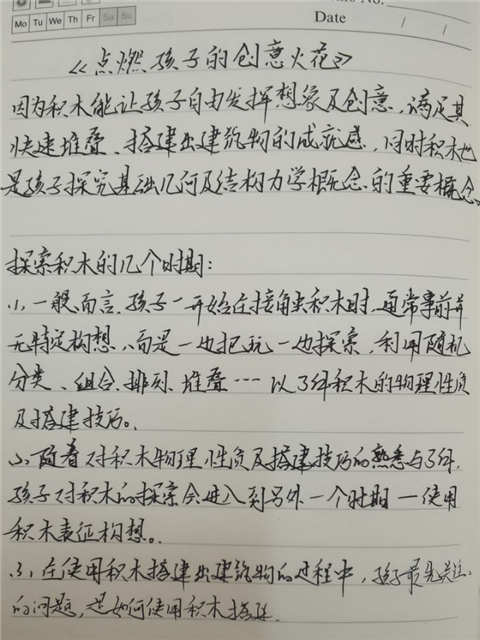 Mo Tu We Th Fr Sa Su
Date / /
《点燃孩子的创意火花》
因为积木能让孩子自由发挥想象及创意,满足其
快速堆叠、搭建出建筑物的成就感,同时积木也
是孩子探究基础几何及结构力学概念的重要概念。
探索积木的几个时期:
1、一般而言,孩子一开始在接触积木时,通常事前并
无特定构想,而是一边把玩一边探索,利用随机
分类、组合、排列、堆叠……以了解积木的物理性质
及搭建技巧。
2、随着对积木物理性质及搭建技巧的熟悉与了解,
孩子对积木的探索会进入到另外一个时期—使用
积木表征构想。
3、在使用积木搭建出建筑物的过程中,孩子最先关注
的问题,是如何使用积木搭建